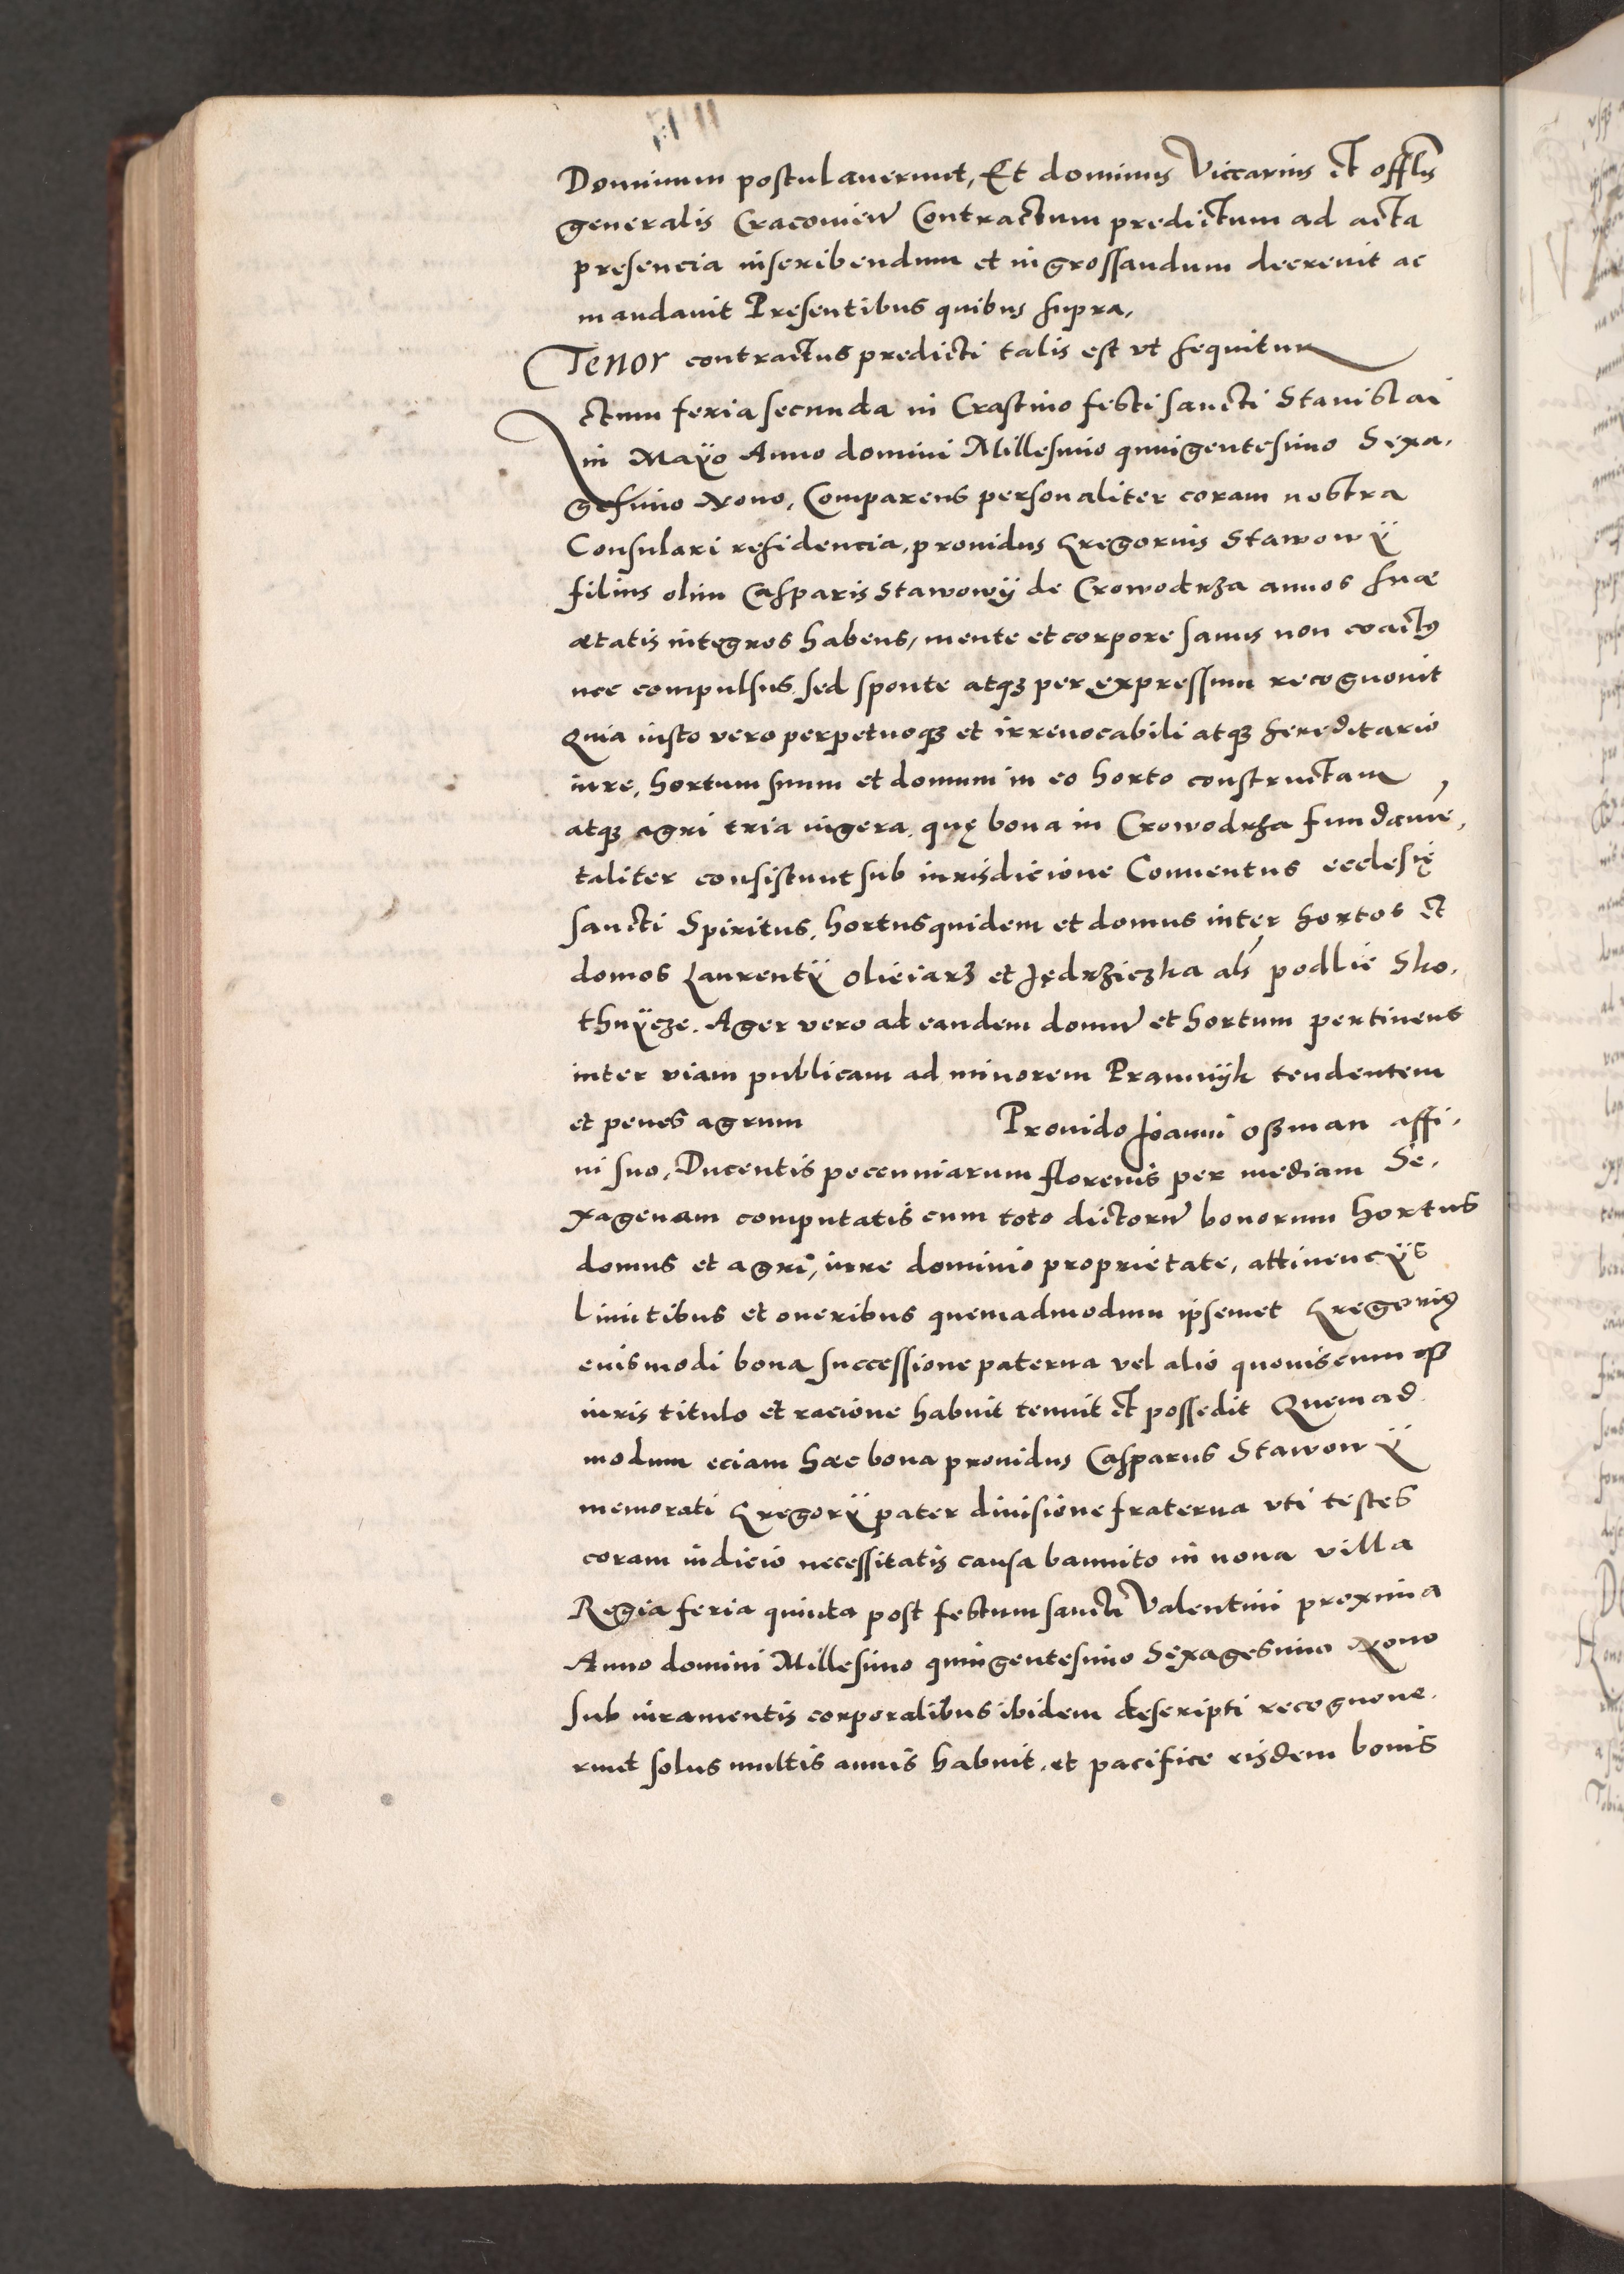 Dominum postulaverunt, Et dominus Viccarius et offlis
generalis Cracovien Contractum predictum ad acta
presencia inscribendum et ingrossandum decrevit ac
mandavit Presentibus quibus supra.
Tenor contractus predicti talis est ut sequitur
Actum feria secunda in Crastino festi sancti Stanislai
in Mayo Anno domini Millesimo quingentesimo Sexa-
gesimo Nono, Comparens personaliter coram nostra
Consulari residencia, providus Gregorius Stawowÿ
filius olim Casparis Stawowÿ de Crowodrza annos suae
aetatis integros habens, mente et corpore sanus non coactus
nec compulsus sed sponte atque per expressum recognovit
Quia iusto vero perpetuoque et irrevocabili atque hereditario
iure, hortum suum et domum in eo horto constructam
atque agri tria iugera, quę bona in Crowodrza fundame-
taliter consistunt sub iurisdicione Conventus ecclesię
sancti Spiritus, hortus quidem et domus inter hortos et
domos Laurentÿ Olieiarz et Jędrziczka als podlie Sko-
thnÿcze. Ager vero ad eandem domum et hortum pertinens
inter viam publicam ad minorem Prannÿk tendentem
et penes agrum Provido Joanni Osman affi-
ni suo, Ducentis pecenniarum florenis per mediam Se-
xagenam computatis cum toto dictorum bonorum hortus
domus et agri, iure dominio proprietate, attinencÿs
limitibus et oneribus quemadmodum ipsemet Gregorius
euismodi bona successione paterna vel alio quoviscumque
iuris titulo et racione habuit tenuit et possedit Quemad-
modum eciam haec bona providus Casparus Stawowÿ
memorati Gregorÿ pater divisione fraterna uti testes
coram iudicio necessitatis causa bannito in nova villa
Regia feria quinta post festum sancti Valentini proxima
Anno domini Millesimo quingentesimo Sexagesimo Nono
sub iuramentis corporalibus ibidem descripti recognove-
runt solus multis annis habuit, et pacifice eisdem bonis